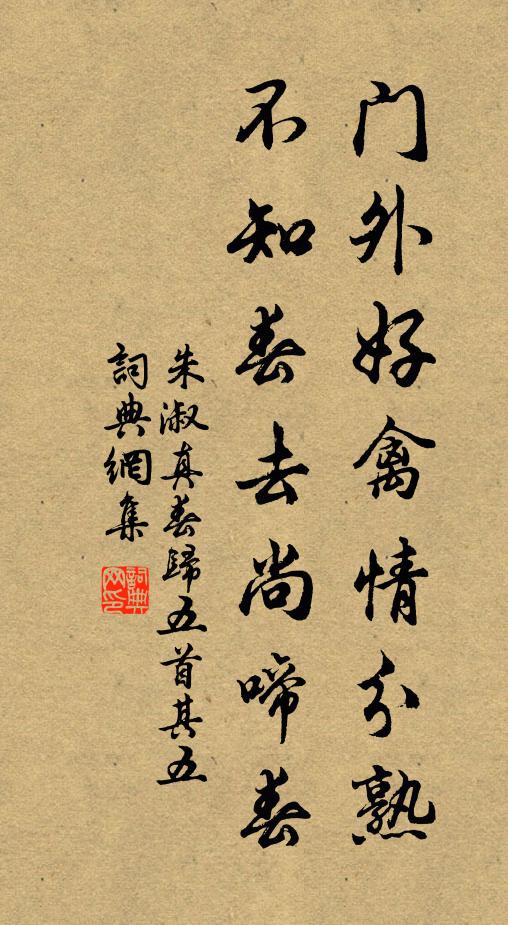 门外好禽情分熟
不知春去尚啼春
朱淑真春歸五首其五
詞典網集
詞典网印